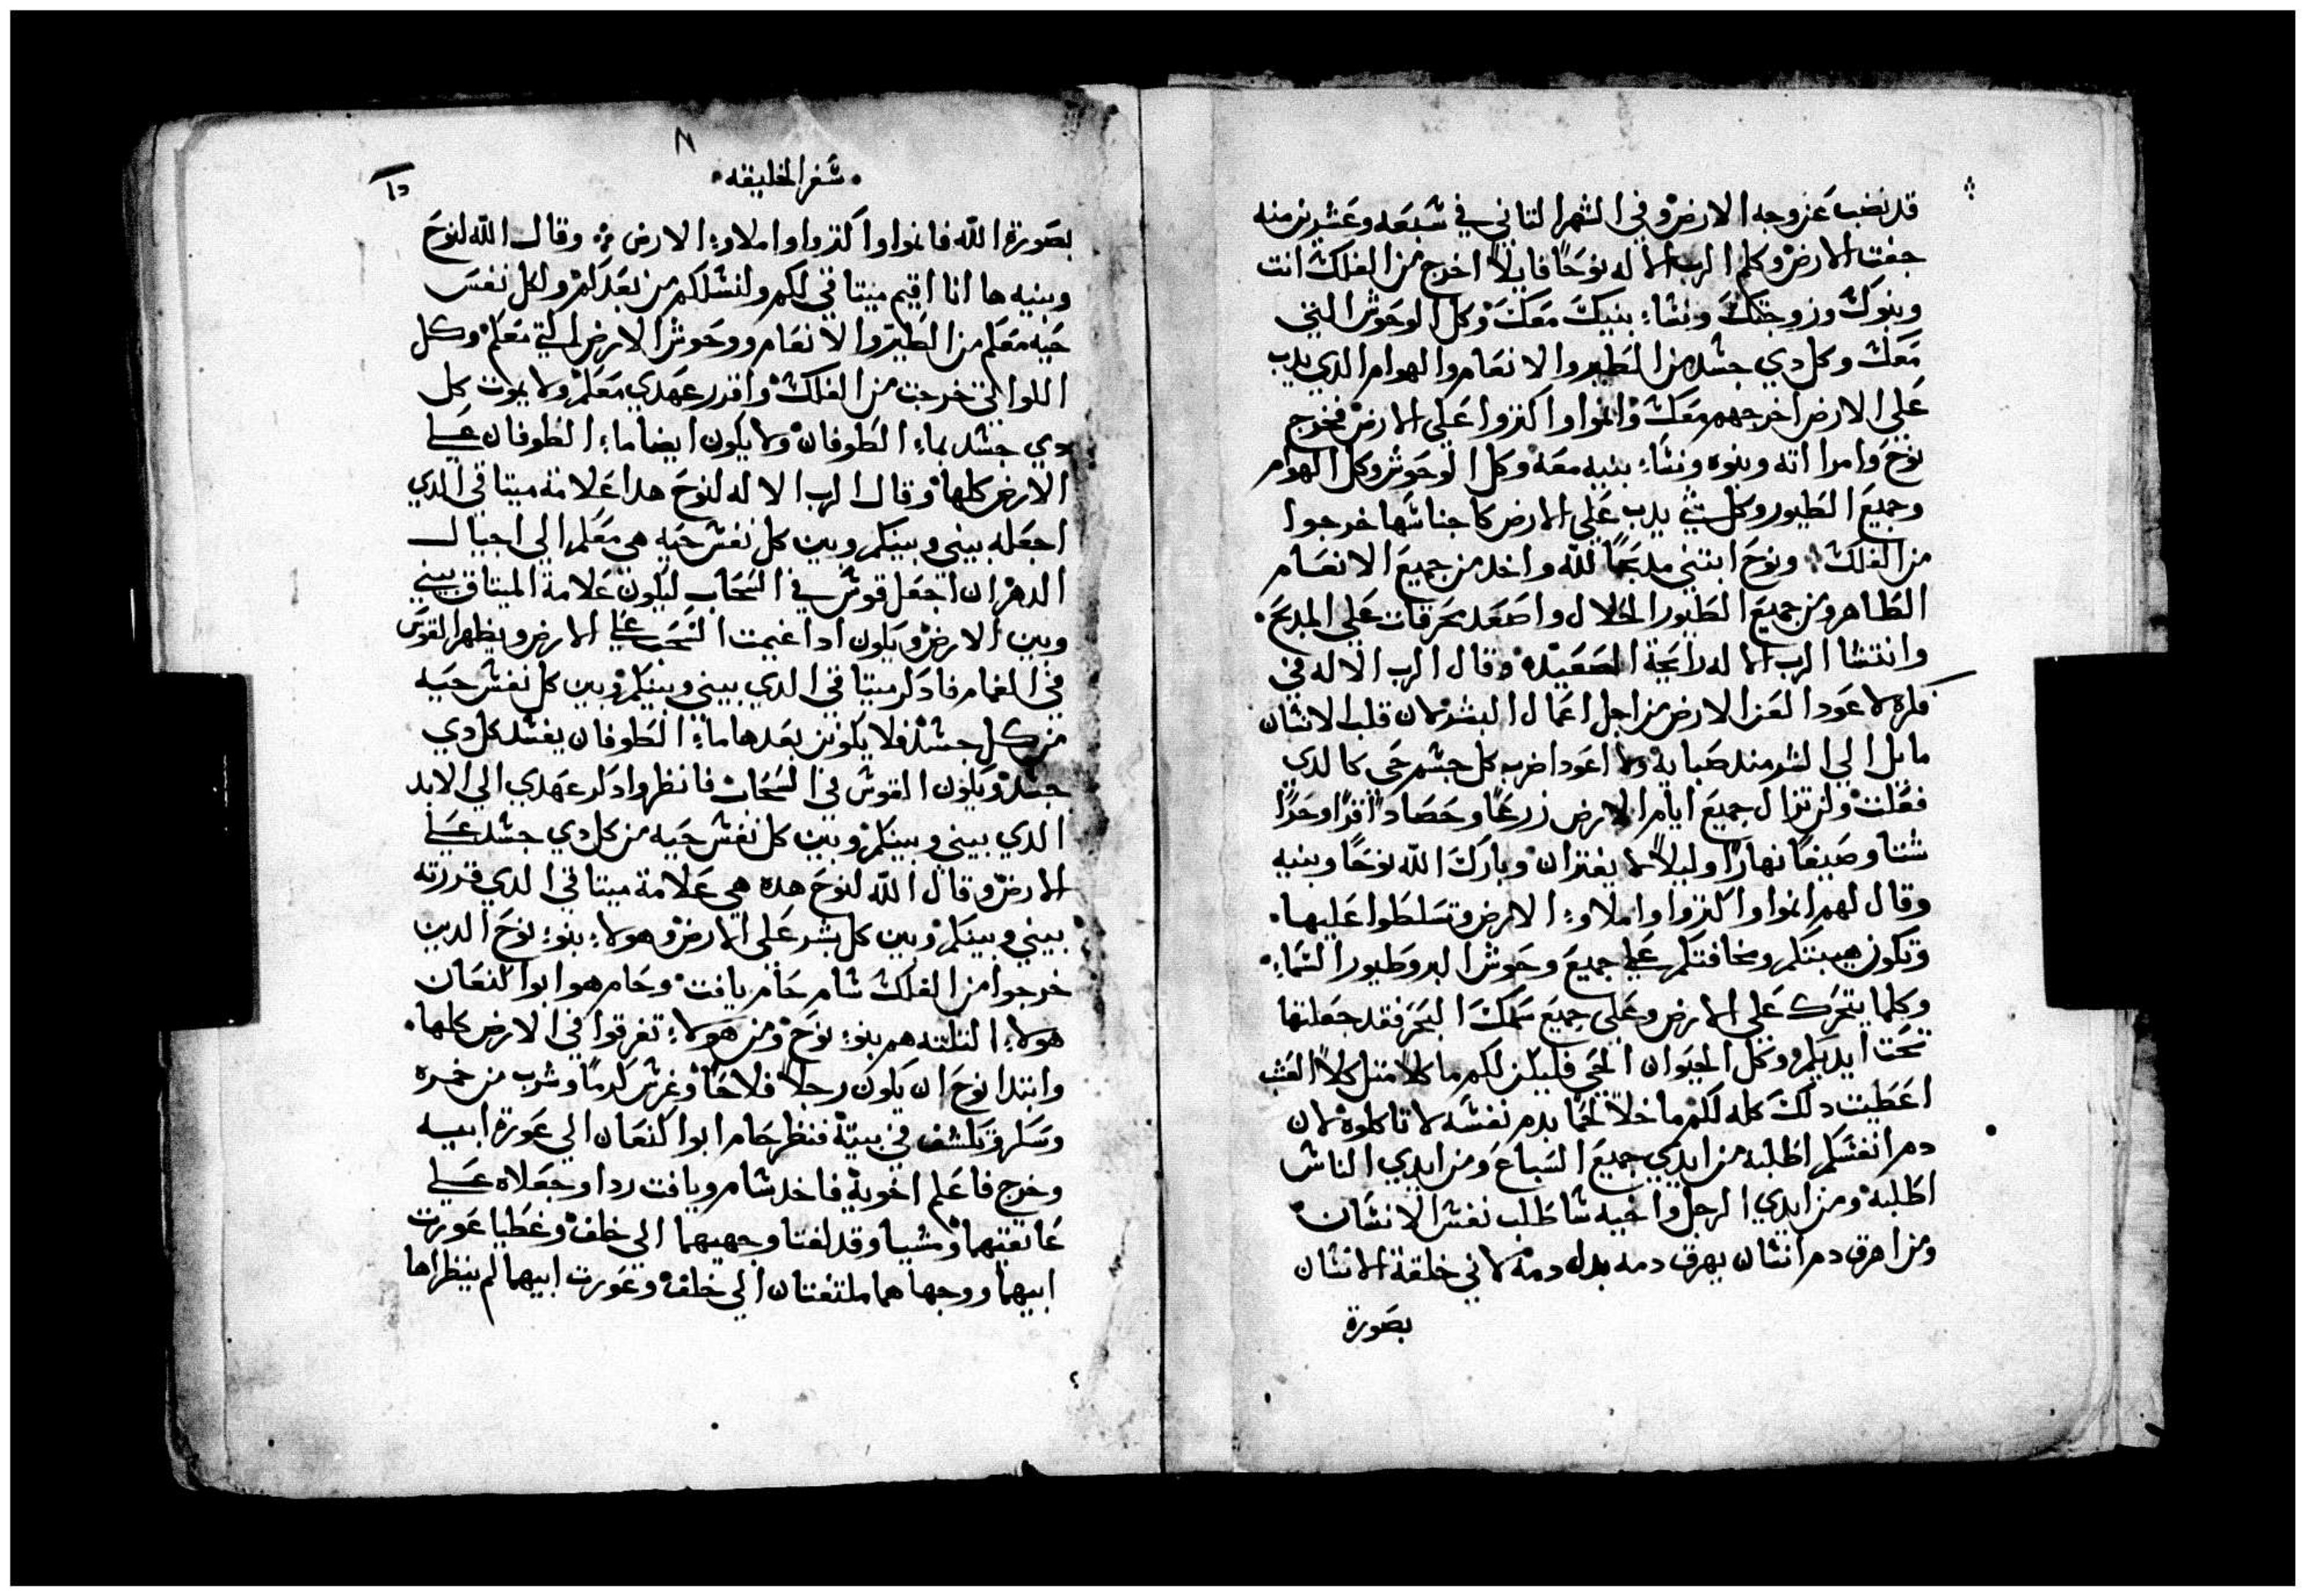 قد نضب عن وجه الارض وفي الشهر التاني في سبعه وعشرين منه
جفت الارض وكلم الرب الاله نوحًا قايلاً اخرج من الفلك انت
وبنوك وزوجتك ونسا بنيك معك وكل الوحوش التي
معك وكل دي جسد من الطيور والانعام والهوام الدي يدب
على الارض اخرجهم معك وانموا واكتروا على الارض فخرج
نوح وامراته وبنوه ونساء بنيه معه وكل الوحوش وكل الهوام
وجميع الطيور وكل شي يدب على الارض كاجناسها خرجوا
من الفلك ونوح ابتني مدبحًا لله واخد من جميع الانعام
الطاهر ومن جميع الطيور الحلال واصعد محرقات علي المدبح
وانتشا الرب الاله رايحة الصعيده وقال الرب الاله في
فكره لا عود العن الارض من اجل اعمال البشر لان قلب الانسان
مايل الي الشر مند صبايه ولا اعود اضرب كل جسم حي كالدي
فعلت ولن تزال جميع ايام الارض زرعًا وحصادًا قرًا وحرًا
شتا وصيفًا نهارًا وليلاً لا يفتران وبارك الله نوحًا وبنيه
وقال لهم انموا واكتروا واملاوا الارض وتسلطوا عليها
وتكون هيبتكم ومخافتكم علي جميع وحوش البر وطيور السماء
وكلما يتحرك على الارض وعلى جميع سمك البحر فقد جعلتها
تحت ايديكم وكل الحيوان الحي فليكن لكم ماكلاً متل كلاً العشب
اعطيت دلك كله لكم ما خلا لحمًا بدم نفسه لا تاكلوه لان
دم انفسكم اطلبه من ايدي جميع السباع ومن ايدي الناس
اطلبه ومن ايدي الرجل واخيه ساطلب نفس الانسان
ومن اهرق دم انسان يهرق دمه بدل دمه لاني خلقة الانسان
بصورة
٨
سفر الخليقه
بصورة الله فانموا واكتروا واملاوا الارض وقال الله لنوح
وبنيه ها انا اقيم ميتاقي لكم ولنسلكم من بعدكم ولكل نفس
حيه معكم من الطير والانعام ووحوش الارض التي معكم وكل
اللواتي خرجت من الفلك واقرر عهدي معكم ولا يموت كل
دي جسد بماء الطوفان ولا يكون ايضا ماء الطوفان علي
الارض كلها وقال الرب الاله لنوح هدا علامة ميتاقي الدي
اجعله بيني وبينكم وبين كل نفس حيه هي معكم الي اجيال
الدهر ان اجعل قوسي في السحاب ليكون علامة الميتاق بيني
وبين الارض ويكون ادا غيمت السحب علي الارض ويظهر القوس
في الغمام فادكر ميتاقي الدي بيني وبينكم وبين كل نفس حيه
من كل جسد فلا يكونن بعدها ماء الطوفان يفسد كل دي
جسد ويكون القوس في السحاب فانظر وادكر عهدي الي الابد
الدي بيني وبينكم وبين كل نفس حيه من كل دي جسد علي
الارض وقال الله لنوح هده هي علامة ميتاقي الدي قررته
بيني وبينكم وبين كل بشر على الارض وهولاء بنوء نوح الدين
خرجوا من الفلك سام حام يافت وحام هو ابو اكنعان
هولاء التلته هم بنوء نوح ومن هولاء تفرقوا في الارض كلها
وابتدا نوح ان يكون رجلاً فلاحًا وغرس كرمًا وشرب من خمره
وسكر وتكشف في بيته فنظر حام ابوا كنعان الي عورة ابيه
وخرج فاعلم اخويه فاخد سام ويافت ردا وجعلاه علي
عاتقيهما ومشيا وقد لفتا وجهيهما الي خلف وغطيا عورت
ابيهما ووجهاهما ملتفتان الي خلف وعورت ابيهما لم ينظراها